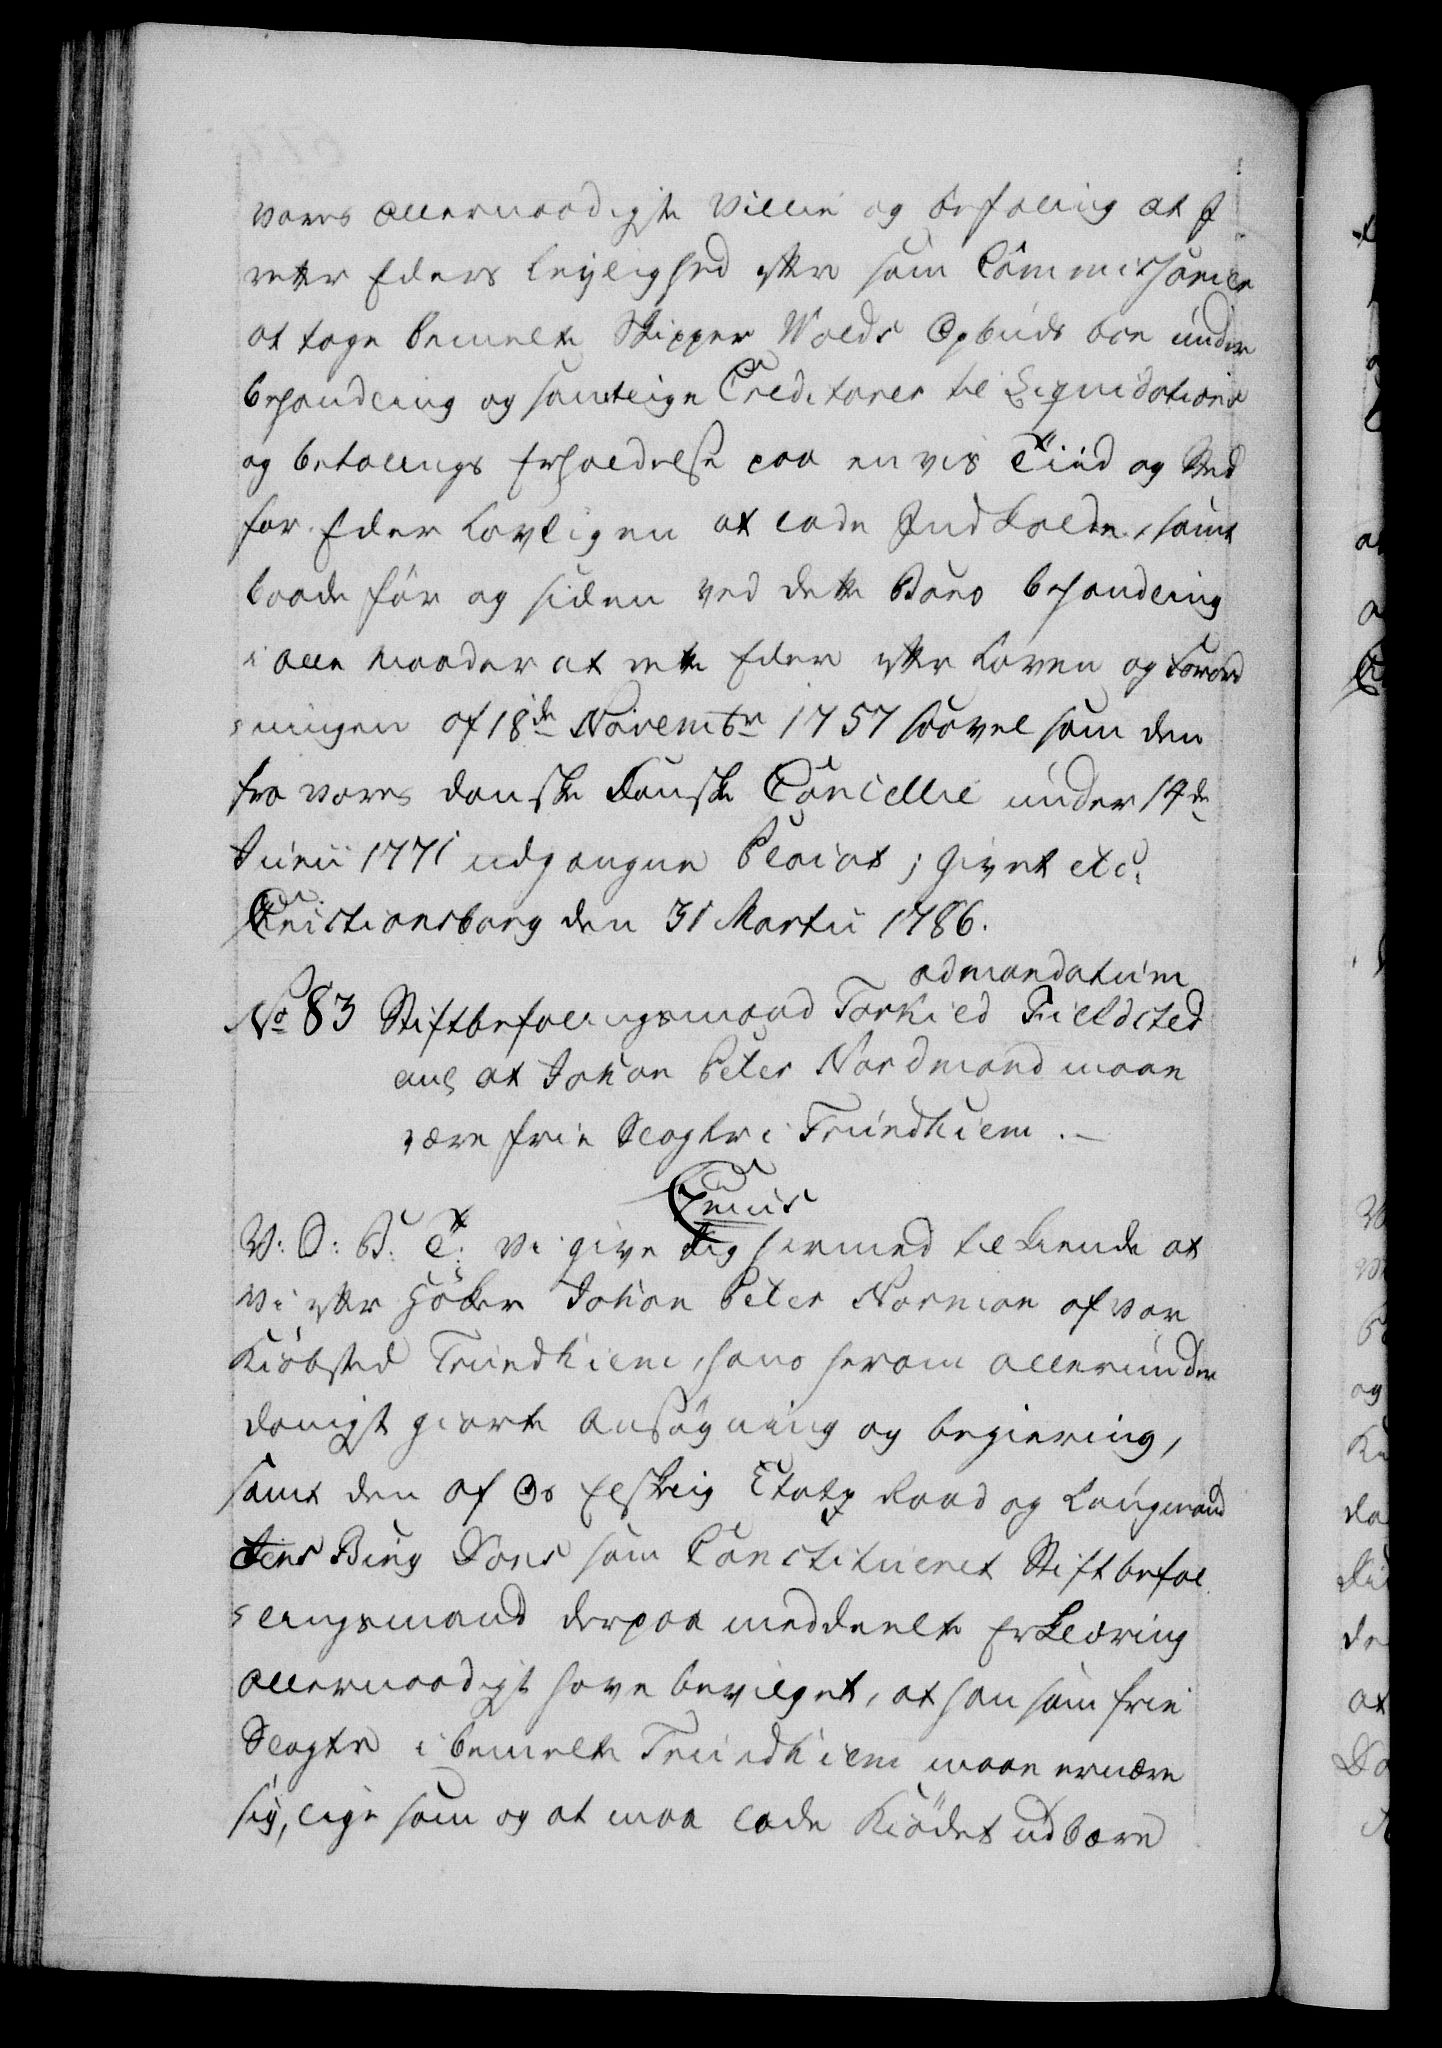 vores allernaadigste Villie og Befaling at I
retter Eders leylighed efter som Commissarier
at tage bemelte Skipper Wolds Opbuds boe under
behandling og samtlige Creditorer til Liqvidations
og betalings Erholdelse paa en vis Tiid og Sted
for Eder lovligen at lade Indkalde, samt
baade før og siden ved dette Boes behandling
i alle Maader at rette Eder efter Loven og Forord
ningen af 18de Novembr 1757 saavel som den
fra vores danske Danske Cancellie under 14de
Junii 1771 udgangne Placat; givet etc.
Christiansborg den 31 Martii 1786.
admandatum
No 83 Stiftbefalingsmand Torkild Fieldsted
ang at Johan Peter Nordmand maae
være frie Slagter i Trundhiem.
Cujus
V: O: B: T: Vi give dig hermed tilkiende at
Vi efter Høker Johan Peter Norman af vor
Kiøbsted Trundhiem, hans herom allerunder
danigst giorte Ansøgning og begiering,
samt den af Os Elskelig Etatz Raad og Laugmand
Jens Bing Dons som Constitueret Stiftbefal
lingsmand derpaa meddeelte Erklæring
allernaadigst have bevilget, at han som frie
Slagter i bemelte Trundhiem maae ernære
sig, lige som og at maa lade Kiødet udbære